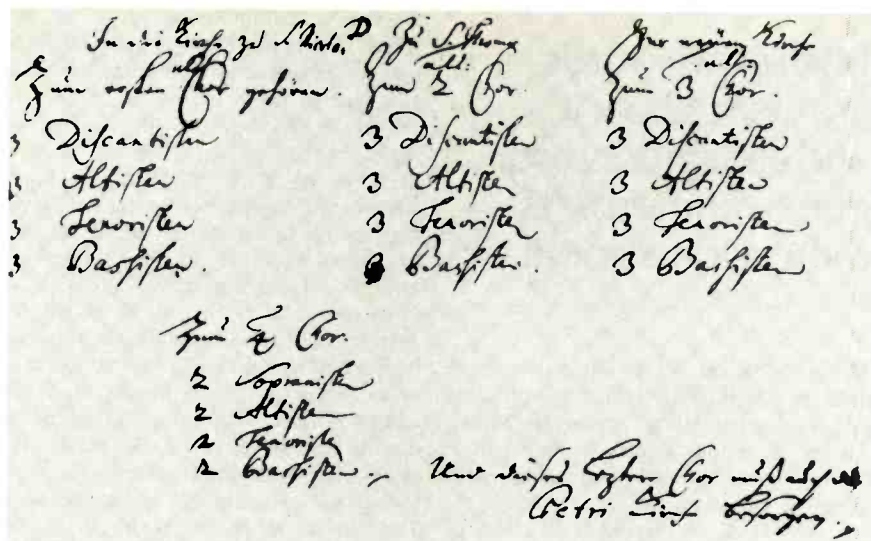 In die Kirche zu S. Nicolai
als
Zum ersten Chor gehören.
3 Discantisten
3 Altisten
3 Tenoristen
3 Bassisten.
Zu S. Thomae
als:
Zum 2 Chor.
3 Discantisten
3 Altisten
3 Tenoristen
3 Bassisten.
Zur neüen Kirche
als:
Zum 3 Chor.
3 Discantisten
3 Altisten
3 Tenoristen
3 Bassisten
Zum 4 Chor.
2 Sopranisten
2 Altisten
2 Tenoristen
2 Bassisten.
Und dieses leztere Chor muß auch die
Petri Kirche besorgen.